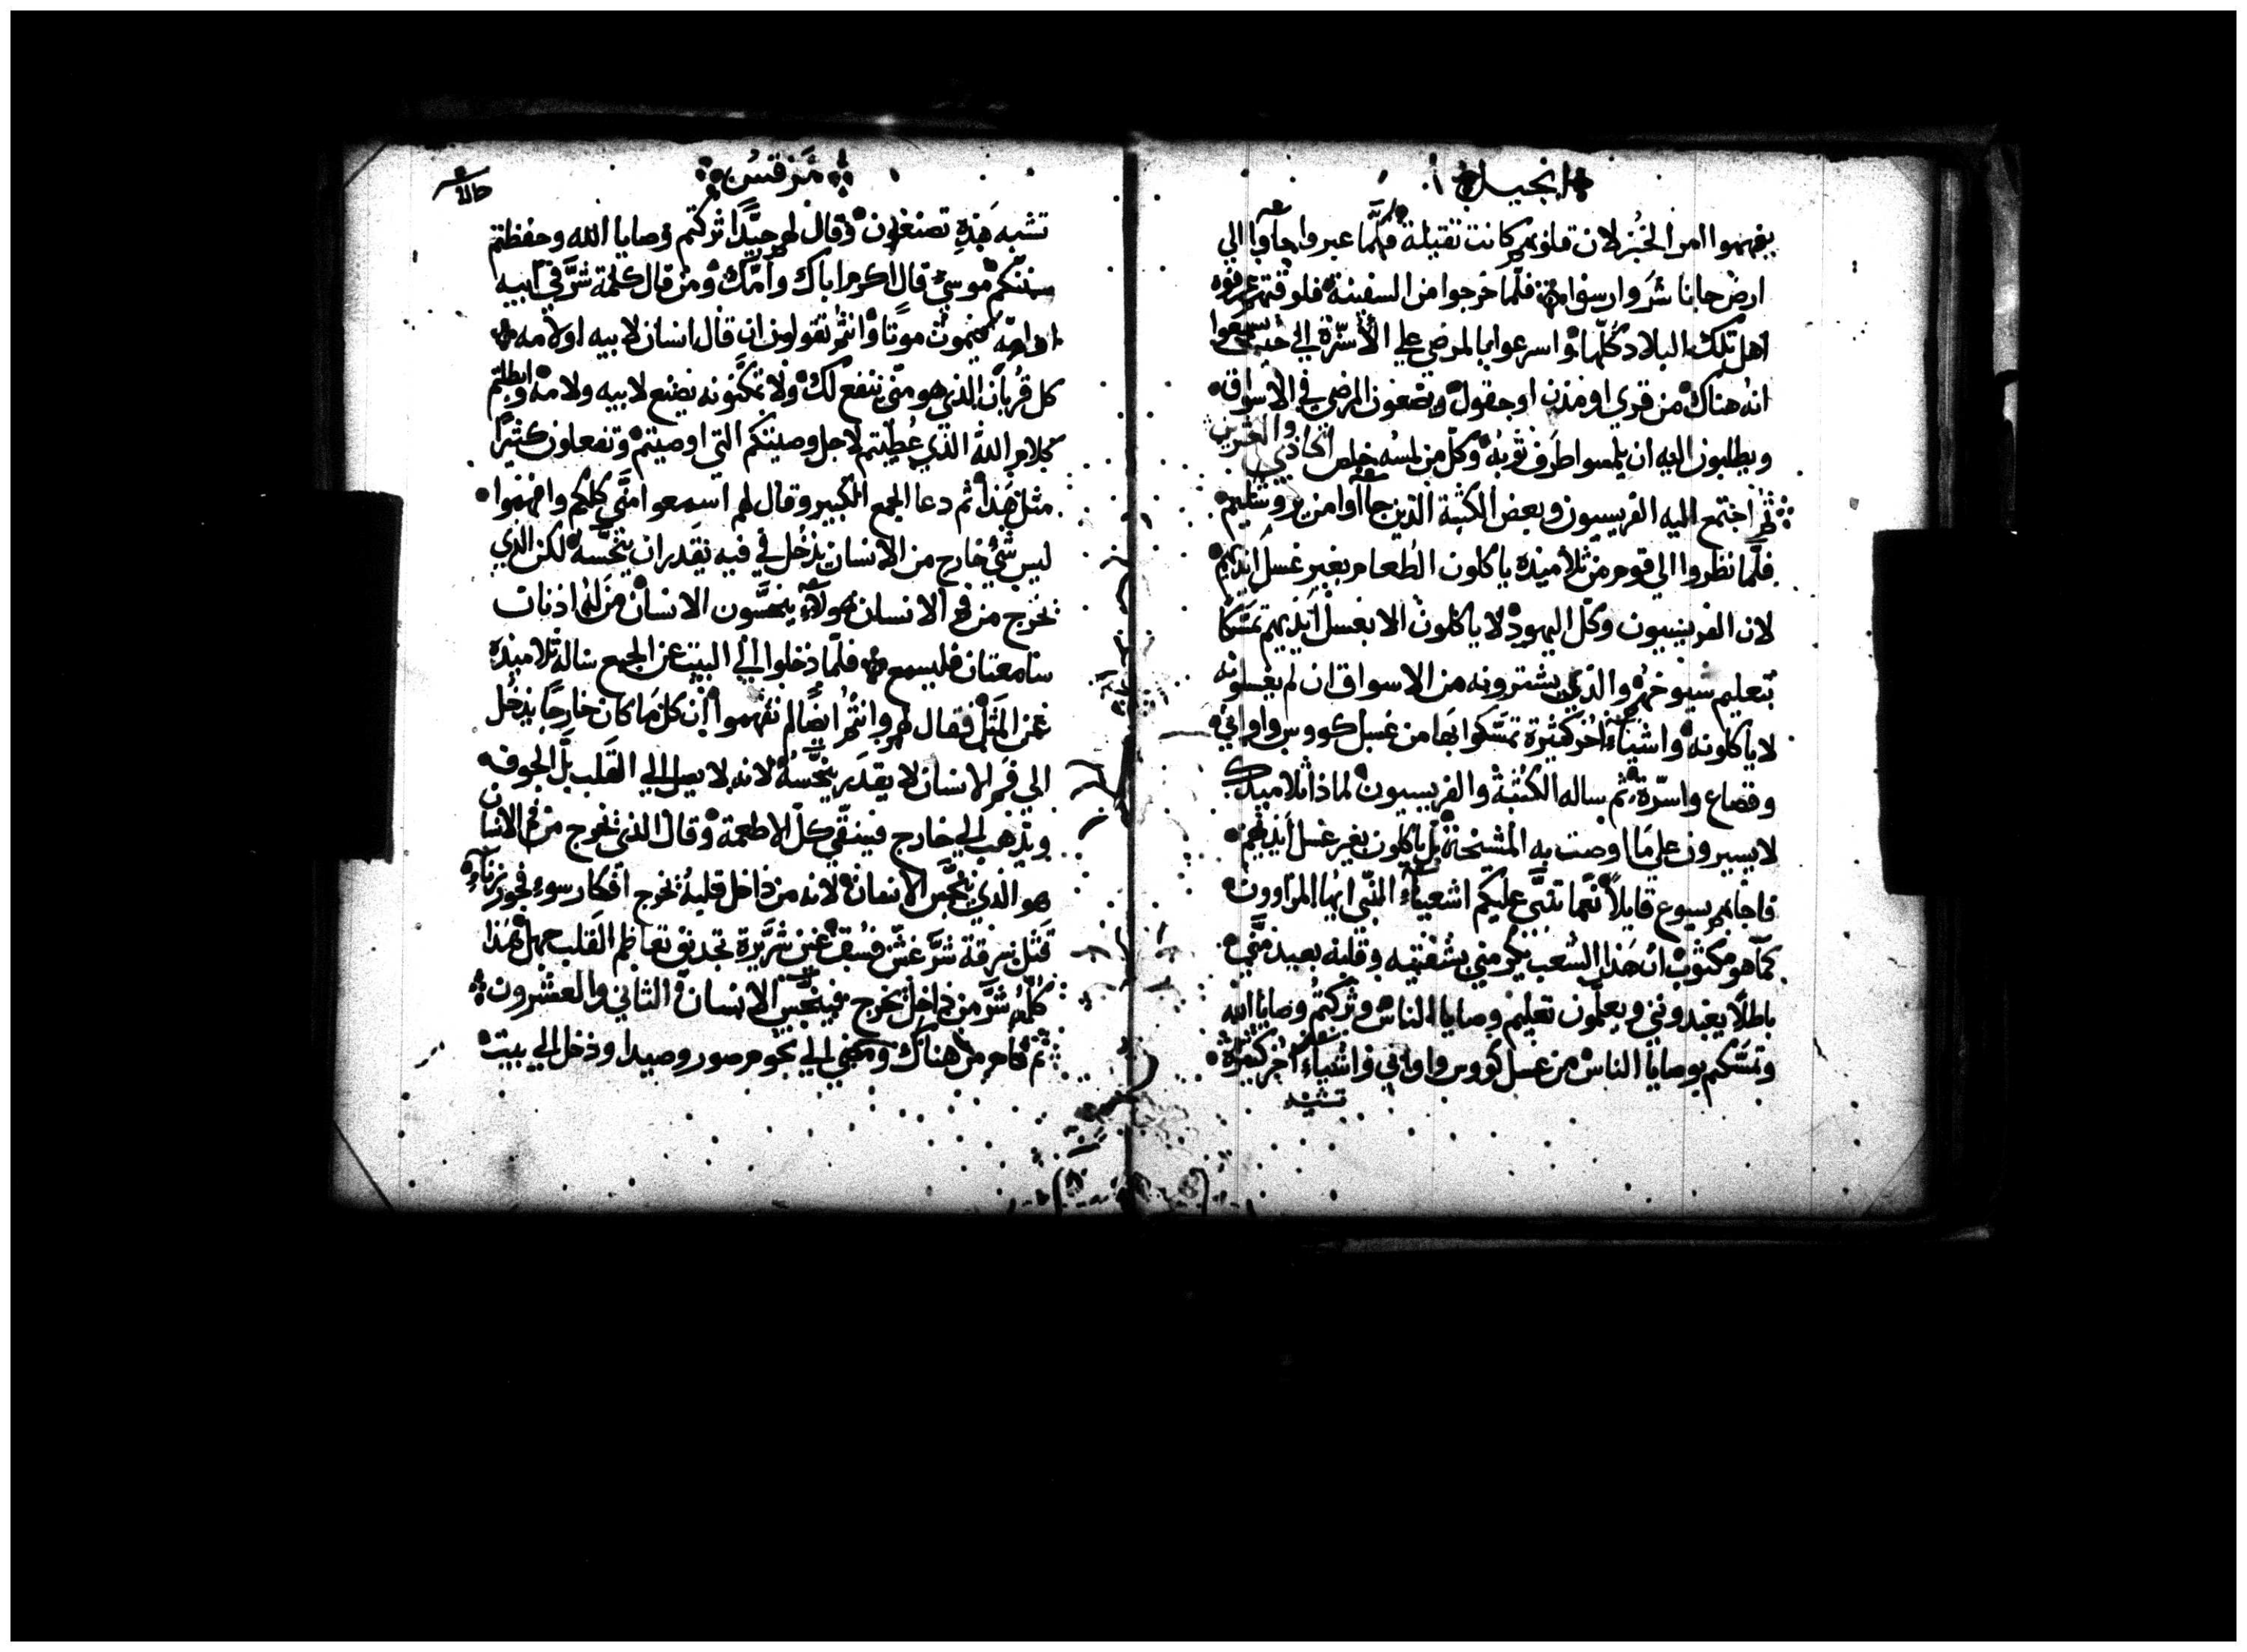 انجيل
يفهموا امر الخبز لان قلوبهم كانت ثقيلة فلمّا عبروا جآوا الي
ارض جاناشر وارسوا فلمّا خرجوا من السفينة فلوقتهم عرفوه
اهل تلك البلاد كلّها واسرعوا بالمرضي علي الأسّرة الي حيث سمعوا
انه هناك من قري او مدن او حقول ويضعون المرضي في الاسواق
ويطلبون اليه ان يلمسوا طرف ثوبه وكلّ من لمسه خلص
ثم اجتمع اليه الفريسيون وبعض الكتبة الذين جاآوا من يروشليم
فلّما نظروا الي قوم من تلاميذه ياكلون الطعام بغير غسل ايديهم
لان الفريسيون وكلّ اليهود لا ياكلون الا بغسل ايديهم تمسّكا
بتعليم شيوخهم والذي يشترونه من الاسواق ان لم يغسلونه
لا ياكلونه واشياء أخر كثيرة تمسّكوا بها من غسل كووس واواني
وقصاع واسّرة ثم ساله الكتبة والفريسيون لماذا تلاميذك
لا يسيرون علي ما اوصت به المشيخة بل ياكلون بغير غسل ايديهم
فاجابهم يسوع قايلاً نعما تنبّي عليكم اشعياء النبّي ايها المراوون
كما هو مكتوب ان هذا الشعب يكرمني بشفتيه وقلبه بعيد منّي
باطلًا يعبدونني ويعلّمون تعليم وصايا الناس وتركتم وصايا الله
وتمسّكم بوصايا الناس من غسل كووس واواني واشياء أخر كثيرة
تشبه
مرقس
تشبه هذه تصنعون وقال لهم جيّدا تركتم وصايا الله وحفظتم
سنتكم موسي قال اكرم اباك وامّك ومن قال كلمة شرّ في ابيه
او امّه فيموت موتًا وانتم تقولون ان قال انسان لابيه او لامه
كل قربان الذي هو منّي ينتفع لك ولا تمكّنونه يصنع لابيه ولامه وابطلتم
كلام الله الذي عُطيتم لاجل وصيتكم التي اوصيتم وتفعلون كثيرًا
مثل هذا ثم دعا الجمع الكبير وقال لهم اسمعوا منّي كلكم وافهموا
ليس شي خارج من الانسان يدخل في فيه يقدر ان ينجّسه لكن الذي
يخرج من فم الانسان هولاء ينجسّون الانسان من له اذنان
سامعتان فليسمع فلمّا دخلوا الي البيت عن الجمع ساله تلاميذه
عن المثل فقال لهم وانتم ايضًا لم تفهموا ان كل ما كان خارجًا يدخل
الي فم الانسان لا يقدر ينجّسه لانه لا يصل الي القلب بل الجوف
ويذهب الي خارج فينقّي كلّ الاطعمة وقال الذي يخرج من فم الانسان
هو الذي ينجّس الانسان لانه من داخل قلبه يخرج افكار سوء فجور زناء
قتل سرقة شرّ غشّ فسق عين شرّيرة تجديف تعاظم القلب جهل هذا
كلّه شرّ من داخل يخرج فينجّس الانسان الثاني والعشرون
ثم قام من هناك ومضي الي تخوم صور وصيدا ودخل الي بيت